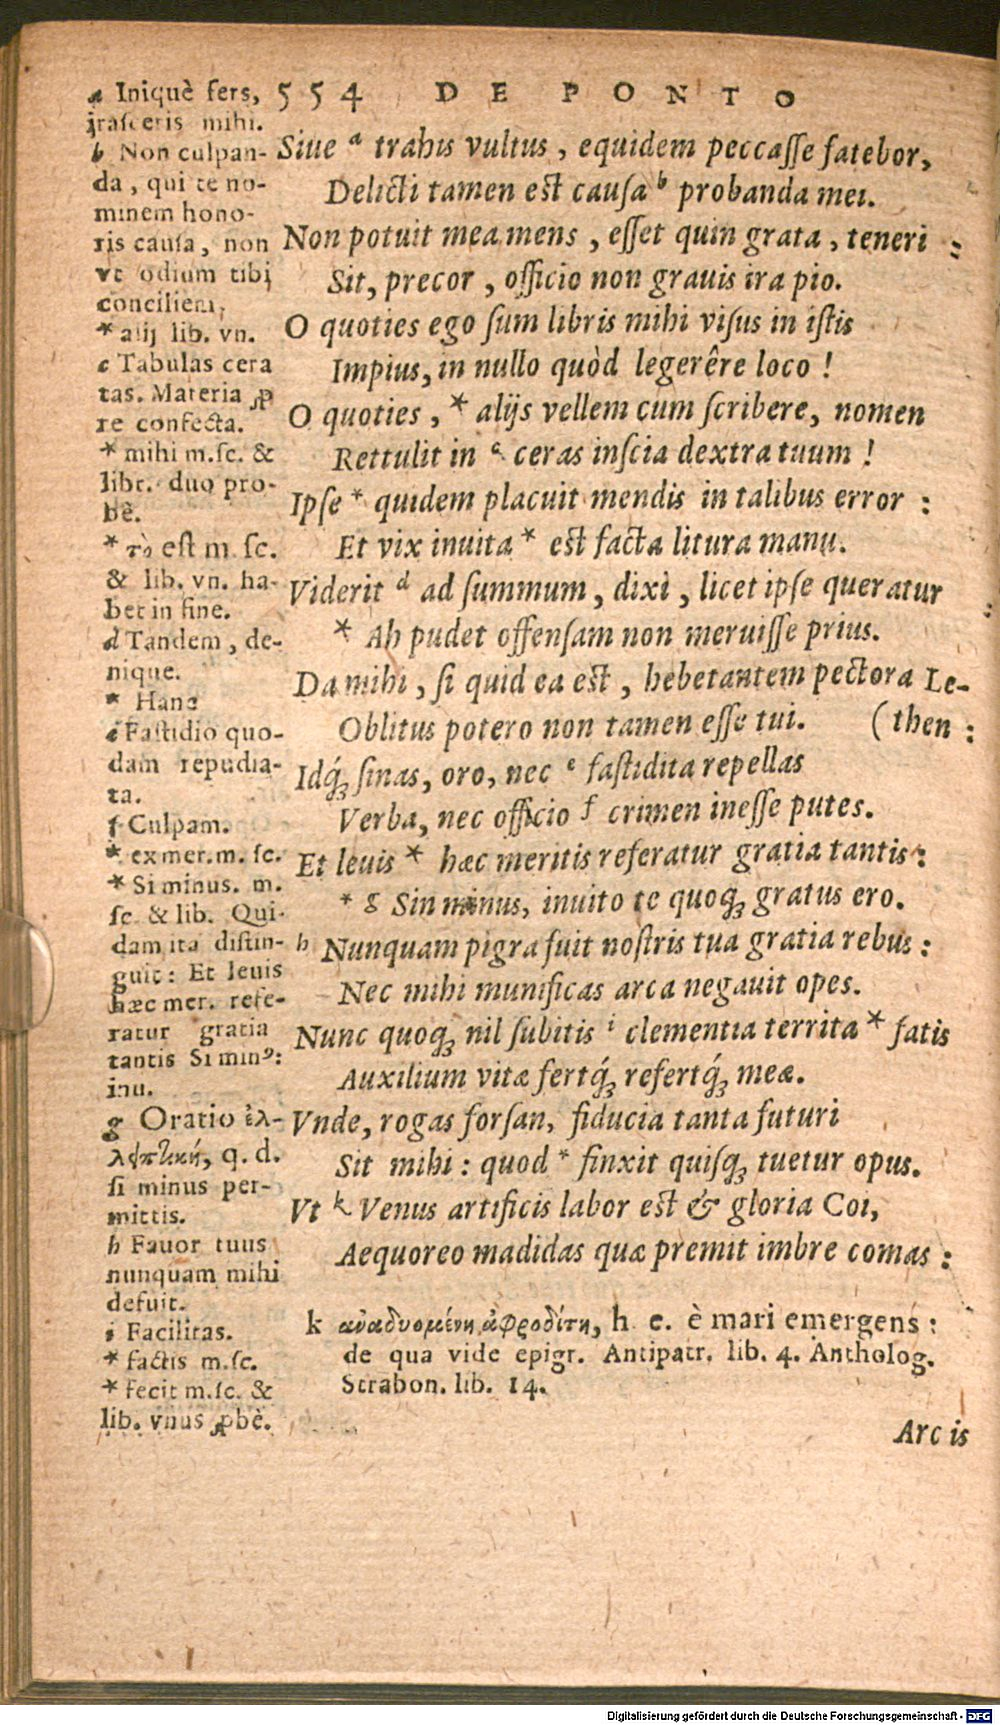 554 DE PONTO
Siue a trahis vultus, equidem peccaſſe fatebor,
Delicti tamen eſt cauſa b probanda mei.
Non potuit mea mens, eſſet quin grata, teneri:
Sit, precor, officio non grauis ira pio.
O quoties ego ſum libris mihi viſus in iſtis
Impius, in nullo quòd legerêre loco!
O quoties, * alijs vellem cum ſcribere, nomen
Rettulit in c ceras inſcia dextra tuum!
Ipſe * quidem placuit mendis in talibus error:
Et vix inuita * eſt facta litura manu.
Viderit d ad ſummum, dixi, licet ipſe queratur:
* Ah pudet offenſam non meruiſſe prius.
Da mihi, ſi quid ea eſt, hebetantem pectora Le-
Oblitus potero non tamen eſſe tui. (then:
Idq́ꝫ ſinas, oro, nec e faſtidita repellas
Verba, nec officio f crimen ineſſe putes.
Et leuis * hæc meritis referatur gratia tantis:
* g Sin minus, inuito te quoqꝫ gratus ero.
h Nunquam pigra fuit noſtris tua gratia rebus:
Nec mihi munificas arca negauit opes.
Nunc quoqꝫ nil ſubitis i clementia territa * fatis
Auxilium vitæ fertq́ꝫ refertq́ꝫ meæ.
Vnde, rogas forſan, fiducia tanta futuri
Sit mihi: quod * finxit quiſqꝫ tuetur opus.
Vt k Venus artificis labor eſt & gloria Coi,
Aequoreo madidas quæ premit imbre comas:
a Iniquè fers,
iraſceris mihi.
b Non culpan-
da, qui te no-
minem hono-
ris cauſa, non
vt odium tibi
conciliem,
* alij lib. vn.
c Tabulas cera
tas. Materia ꝓ
re confecta.
* mihi m.ſc. &
libr. duo pro-
bè.
* τὸ eſt m. ſc.
& lib. vn. ha-
bet in fine.
d Tandem, de-
nique.
* Hanc
e Faſtidio quo-
dam repudia-
ta.
f Culpam.
* ex mer. m. ſc.
* Si minus. m.
ſc. & lib. Qui-
dam ita diſtin-
guit: Et leuis
hæc mer. refe-
ratur gratia
tantis Si minꝰ:
inu.
g Oratio ἐλ-
λειπτικὴ, q. d.
ſi minus per-
mittis.
h Fauor tuus
nunquam mihi
defuit.
i Facilitas.
* factis m.ſc.
* fecit m.ſc. &
lib. vnus ꝓbè.
k ἀναδυομένη ἀφροδίτη, h. e. è mari emergens:
de qua vide epigr. Antipatr. lib. 4. Antholog.
Strabon. lib. 14.
Arcis
Digitalisierung gefördert durch die Deutsche Forschungsgemeinschaft - DFG